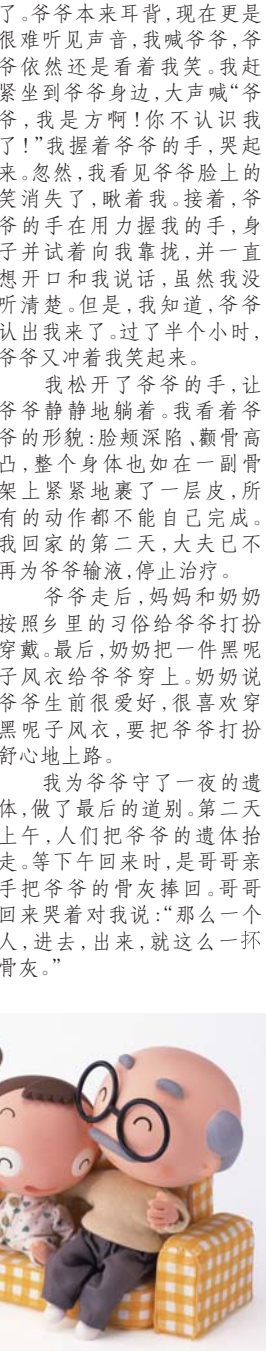 了。爷爷本来耳背,现在更是
很难听见声音,我喊爷爷,爷
爷依然还是看着我笑。我赶
紧坐到爷爷身边,大声喊“爷
爷,我是方啊!你不认识我
了!”我握着爷爷的手,哭起
来。忽然,我看见爷爷脸上的
笑消失了,瞅着我。接着,爷
爷的手在用力握我的手,身
子并试着向我靠扰,并一直
想开口和我说话,虽然我没
听清楚。但是,我知道,爷爷
认出我来了。过了半个小时,
爷爷又冲着我笑起来。
我松开了爷爷的手,让
爷爷静静地躺着。我看着爷
爷的形貌:脸颊深陷、颧骨高
凸,整个身体也如在一副骨
架上紧紧地裹了一层皮,所
有的动作都不能自己完成。
我回家的第二天,大夫已不
再为爷爷输液,停止治疗。
爷爷走后,妈妈和奶奶
按照乡里的习俗给爷爷打扮
穿戴。最后,奶奶把一件黑呢
子风衣给爷爷穿上。奶奶说
爷爷生前很爱好,很喜欢穿
黑呢子风衣,要把爷爷打扮
舒心地上路。
我为爷爷守了一夜的遗
体,做了最后的道别。第二天
上午,人们把爷爷的遗体抬
走。等下午回来时,是哥哥亲
手把爷爷的骨灰捧回。哥哥
回来哭着对我说:“那么一个
人,进去,出来,就这么一抔
骨灰。”